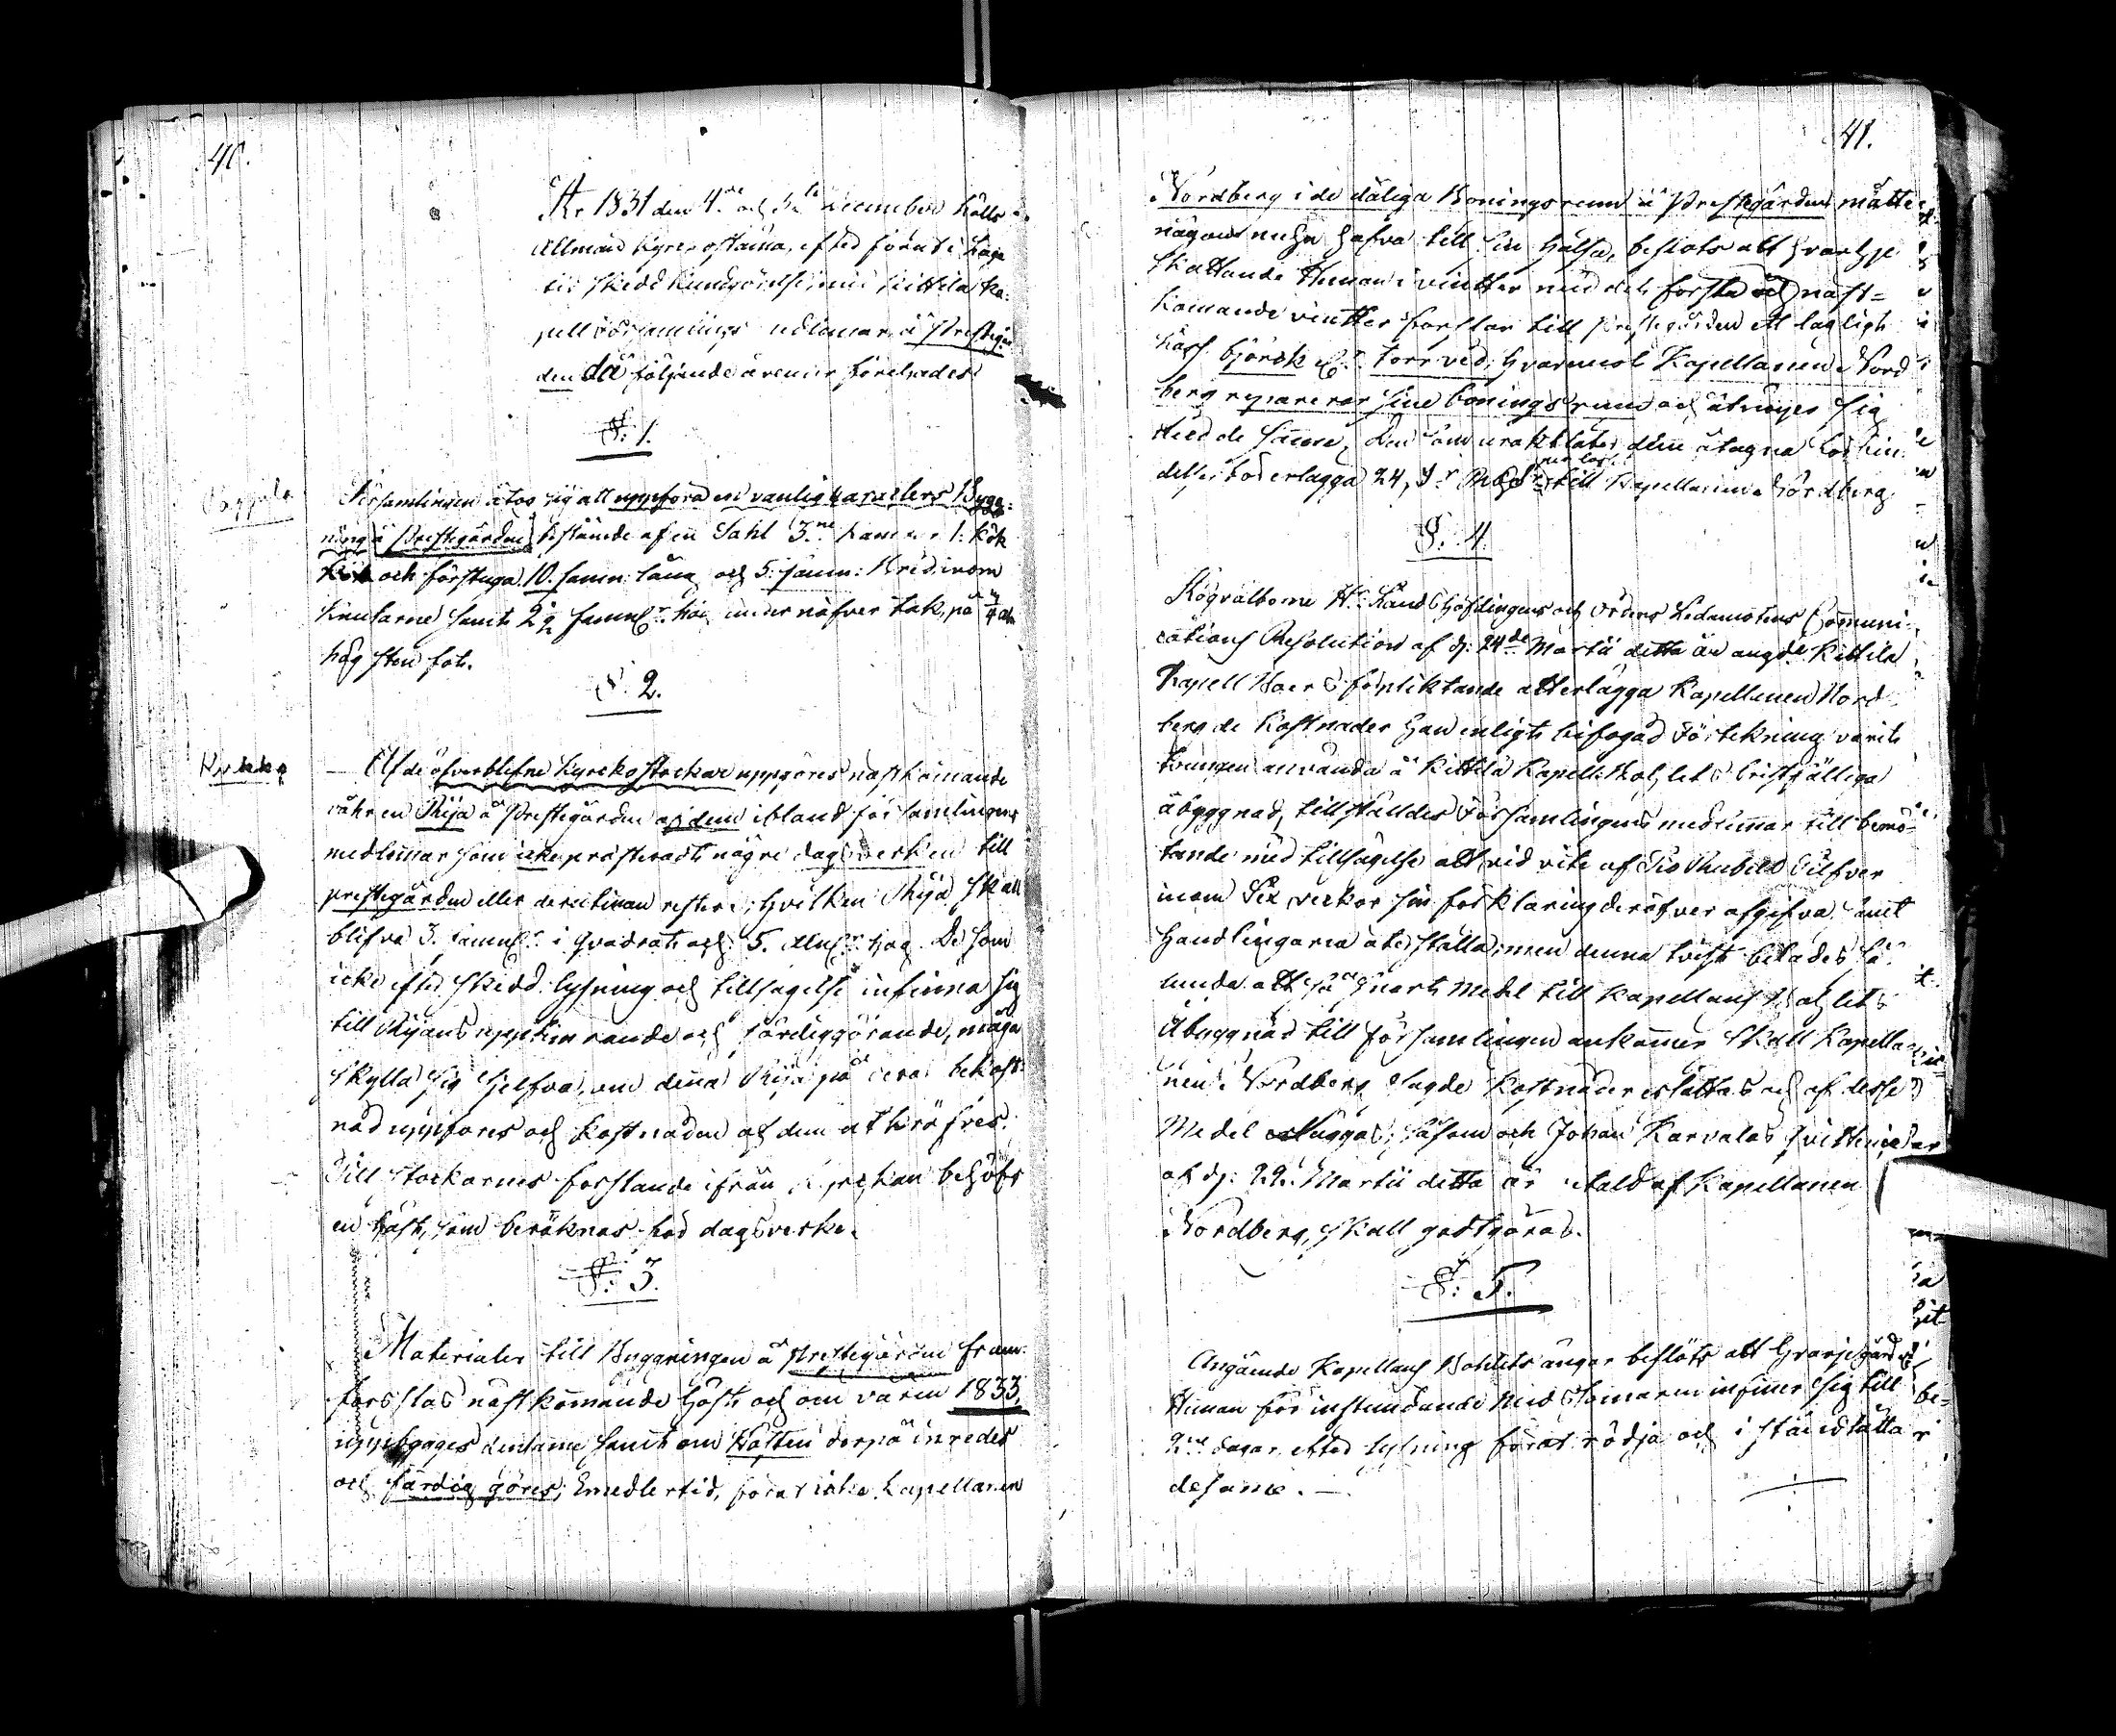 40.
År 1831 den 4de och 5te December hölls
Allmän Kyrkostämma, efter förut i Laga
tid skedd kundgörelse, med Kittilä ka-
pell Församlings ledamar, å Prestgår
den då följande ärender förehades
§. 1.
Församlingen åtog sig att uppföra en vanlig karacters Bygg-
ning å Prestegården, bestående af en Sahl 3ne kamrar 1. kök
och förstuga 10. famn: lång och 5. famn: bred inom
knutarne samt 2½ famnar hög under näfver tak, på
hög sten fot.
§. 2.
Af de öfverblifne Kyrkostockar uppgöres nästkommande
våhr en Rija å Prestegården af dem ibland församlingens
medlemmar som icke presteradt någre dagsverken till
prestegården eller deruti hvilken Rija skall
blifva 3. famnar i Qvadrat och 5. Alnar hög. De som
icke efter skedd lysning och tillsägelse infinna sig
till Rijans upptimrande och färdiggörande, måga
skylla sig sjelfva, om denna Rija på deras bekost-
nad uppföres och kostnaden af dem utkräfves.
Till stockarnes forslande ifrån Kyrkan behöfs
en häst, som beräknas för dagsverke.
§. 3.
Materialier till Byggningen å prestegården fram-
forsslas nästkommande höst och om våren 1833,
uppbygges densamme samt om Hösten derpå inredes
och färdig göres; Emedlertid, förat icke Kapellanen
41.
Nordberg i de dåliga Boningsrum å Prestegården måtte
någon men hafva till sin hälsa, beslöts att hvarje
skattande Heman i vintter med det första och näst-
komande vintter forslar till prestegården ett lagligt
lass björck torr ved; hvaremot Kapellanen Nord
berg reparerar sine boningsrum och åtnöjer sig
med de samme, Den som uraktlåter denne åtagna
dels, bör erlägga 24, till Kapellanen Nordberg
§. 4.
Högvälborne Hr Landshöfdingens och Ordens Ledamotens Communi-
cations Resolution af d: 24de Martii detta år angde Kittilä
Kapell Boers förpliktande att erlägga Kapellanen Nord-
berg de Kostnader han enligt bifogad Förtekning varit
tvungen använda å Kittilä Kapell: Bohlets bristfälliga
åbyggnad, tillställdes Församlingens medlemmar till bemö-
tande med tillsägelse att vid vite af Tio Rubel Silfver
inom Sex veckor sin förklaring deröfver afgifva, samt
Handlingarna återställa; men denna tvist bilades så-
lunda att så snart Medel till kapellans Bohlets
Åbyggnad till församlingen ankommer skall Kapella-
nen Nordberg sagde kostnader ersättas och af desse
Medel erläggas, såsom och Johan Karvalas
af d: 29. Martii detta år af Kapellanen
Nordberg, skall godtgöras.
§. 5.
Angående Kapellans Bohlets ängar beslöts att hvarje gård
Heman för instundande Midsommaren infiner sig till
2ne dagar efter lysning förat rödja och i stånd sätta
desame. —